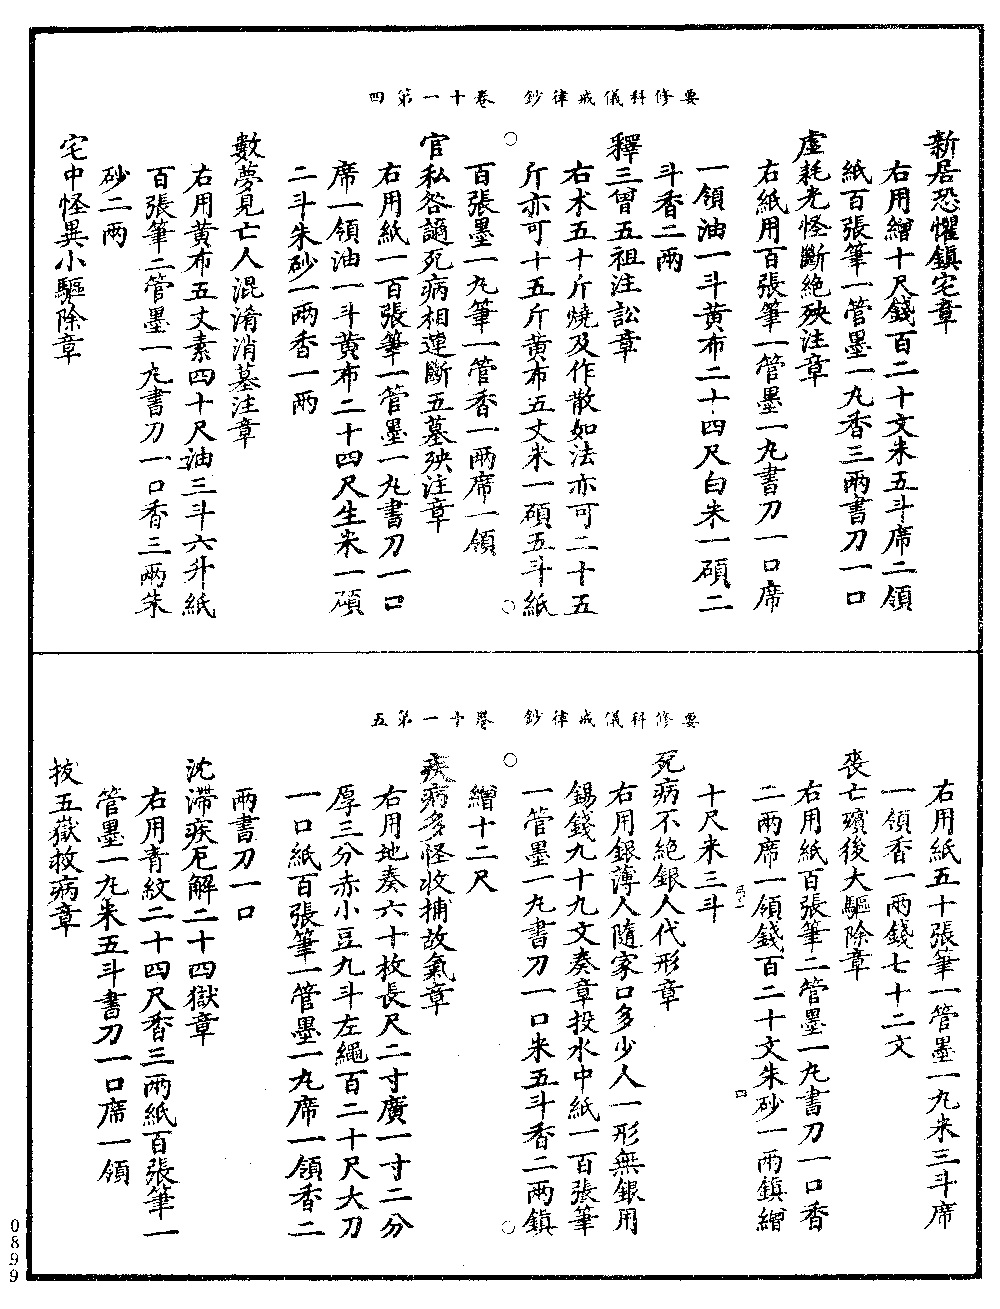 要修科儀戒律鈔 卷十一第四
新居恐懼鎮宅章
右用繒十尺錢百二十文米五斗席二領
紙百張筆一管墨一丸香三兩書刀一口
虛耗光怪斷絕殃注章
右紙用百張筆一管墨一丸書刀一口席
一領油一斗黃布二十四尺白米一碩二
斗香二兩
釋三曾五祖注訟章
右木五十斤燒及作散如法亦可二十五
斤亦可十五斤黃布五丈米一碩五斗紙
百張墨一丸筆一管香一兩席一領
官私咎讁死病相連斷五墓殃注章
右用紙一百張筆一管墨一丸書刀一口
席一領油一斗黃布二十四尺生米一碩
二斗朱砂一兩香一兩
數夢見亡人混淆消墓注章
右用黃布五丈素四十尺油三斗六升紙
百張筆二管墨一丸書刀一口香三兩朱
砂二兩
宅中怪異小驅除章
要修科儀戒律鈔 卷十一第五
右用紙五十張筆一管墨一丸米三斗席
一領香一兩錢七十二文
喪亡殯後大驅除章
右用紙百張筆二管墨一丸書刀一口香
二兩席一領錢百二十文朱砂一兩鎮繒
十尺米三斗
死病不絕銀人代形章
右用銀薄人隨家口多少人一形無銀用
錫錢九十九文奏章投水中紙一百張筆
一管墨一丸書刀一口米五斗香二兩鎮
繒十二尺
疾病多怪收捕故氣章
右用地奏六十枚長尺二寸廣一寸二分
厚三分赤小豆九斗左繩百二十尺大刀
一口紙百張筆一管墨一丸席一領香二
兩書刀一口
沈滯疾厄解二十四獄章
右用青紋二十四尺香三兩紙百張筆一
管墨一丸米五斗書刀一口席一領
拔五嶽救病章
0899